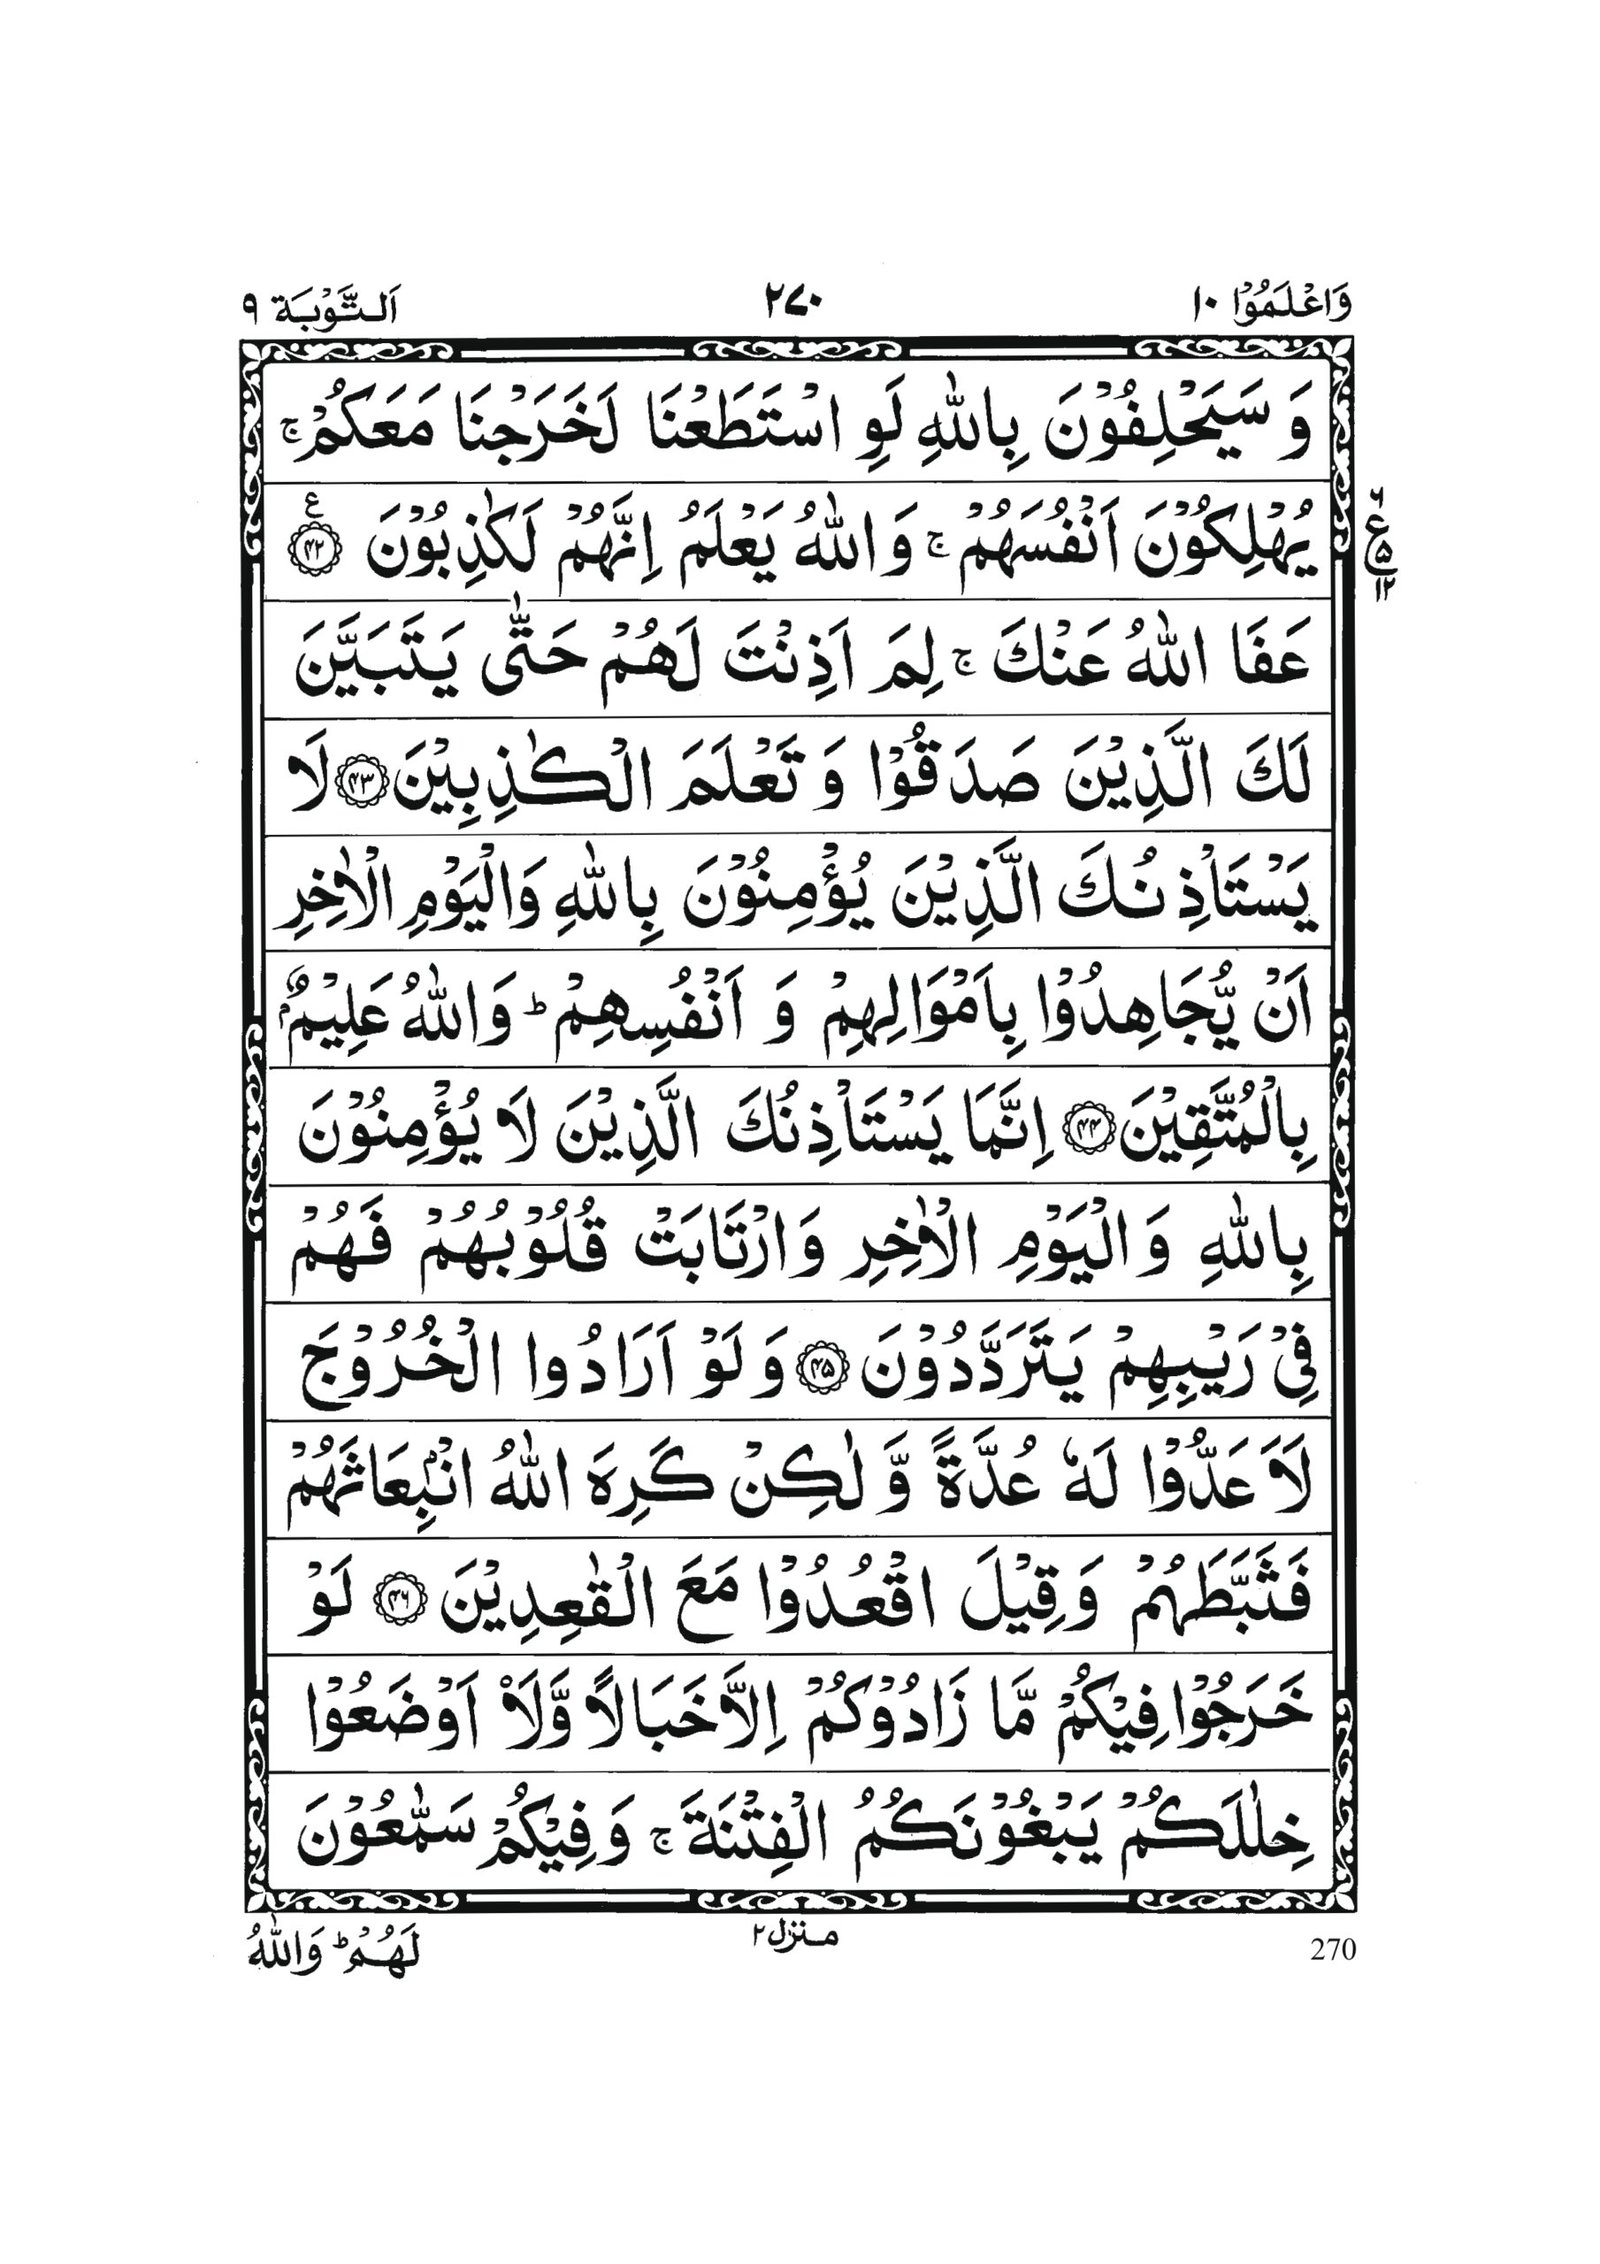 وَاعْلَمُوْۤا ۱۰
۲۷۰
اَلتَّوْبَة ۹
وَ سَيَحْلِفُوْنَ بِاللّٰهِ لَوِ اسْتَطَعْنَا لَخَرَجْنَا مَعَكُمْ ۚ
يُهْلِكُوْنَ اَنْفُسَهُمْ ۚ وَاللّٰهُ يَعْلَمُ اِنَّهُمْ لَكٰذِبُوْنَ ﴿۴۲﴾ ع
۶ ع ۵ ۱۲
عَفَا اللّٰهُ عَنْكَ ۚ لِمَ اَذِنْتَ لَهُمْ حَتّٰى يَتَبَيَّنَ
لَكَ الَّذِيْنَ صَدَقُوْا وَ تَعْلَمَ الْكٰذِبِيْنَ ﴿۴۳﴾ لَا
يَسْتَاْذِنُكَ الَّذِيْنَ يُؤْمِنُوْنَ بِاللّٰهِ وَالْيَوْمِ الْاٰخِرِ
اَنْ يُّجَاهِدُوْا بِاَمْوَالِهِمْ وَ اَنْفُسِهِمْ ؕ وَاللّٰهُ عَلِيْمٌۢ
بِالْمُتَّقِيْنَ ﴿۴۴﴾ اِنَّمَا يَسْتَاْذِنُكَ الَّذِيْنَ لَا يُؤْمِنُوْنَ
بِاللّٰهِ وَ الْيَوْمِ الْاٰخِرِ وَارْتَابَتْ قُلُوْبُهُمْ فَهُمْ
فِيْ رَيْبِهِمْ يَتَرَدَّدُوْنَ ﴿۴۵﴾ وَ لَوْ اَرَادُوا الْخُرُوْجَ
لَاَعَدُّوْا لَهٗ عُدَّةً وَّ لٰكِنْ كَرِهَ اللّٰهُ انْۢبِعَاثَهُمْ
فَثَبَّطَهُمْ وَ قِيْلَ اقْعُدُوْا مَعَ الْقٰعِدِيْنَ ﴿۴۶﴾ لَوْ
خَرَجُوْا فِيْكُمْ مَّا زَادُوْكُمْ اِلَّا خَبَالًا وَّلَاۡ اَوْضَعُوْا
خِلٰلَكُمْ يَبْغُوْنَكُمُ الْفِتْنَةَ ۚ وَ فِيْكُمْ سَمّٰعُوْنَ
270
منزل ۲
لَهُمْ ؕ وَاللّٰهُ